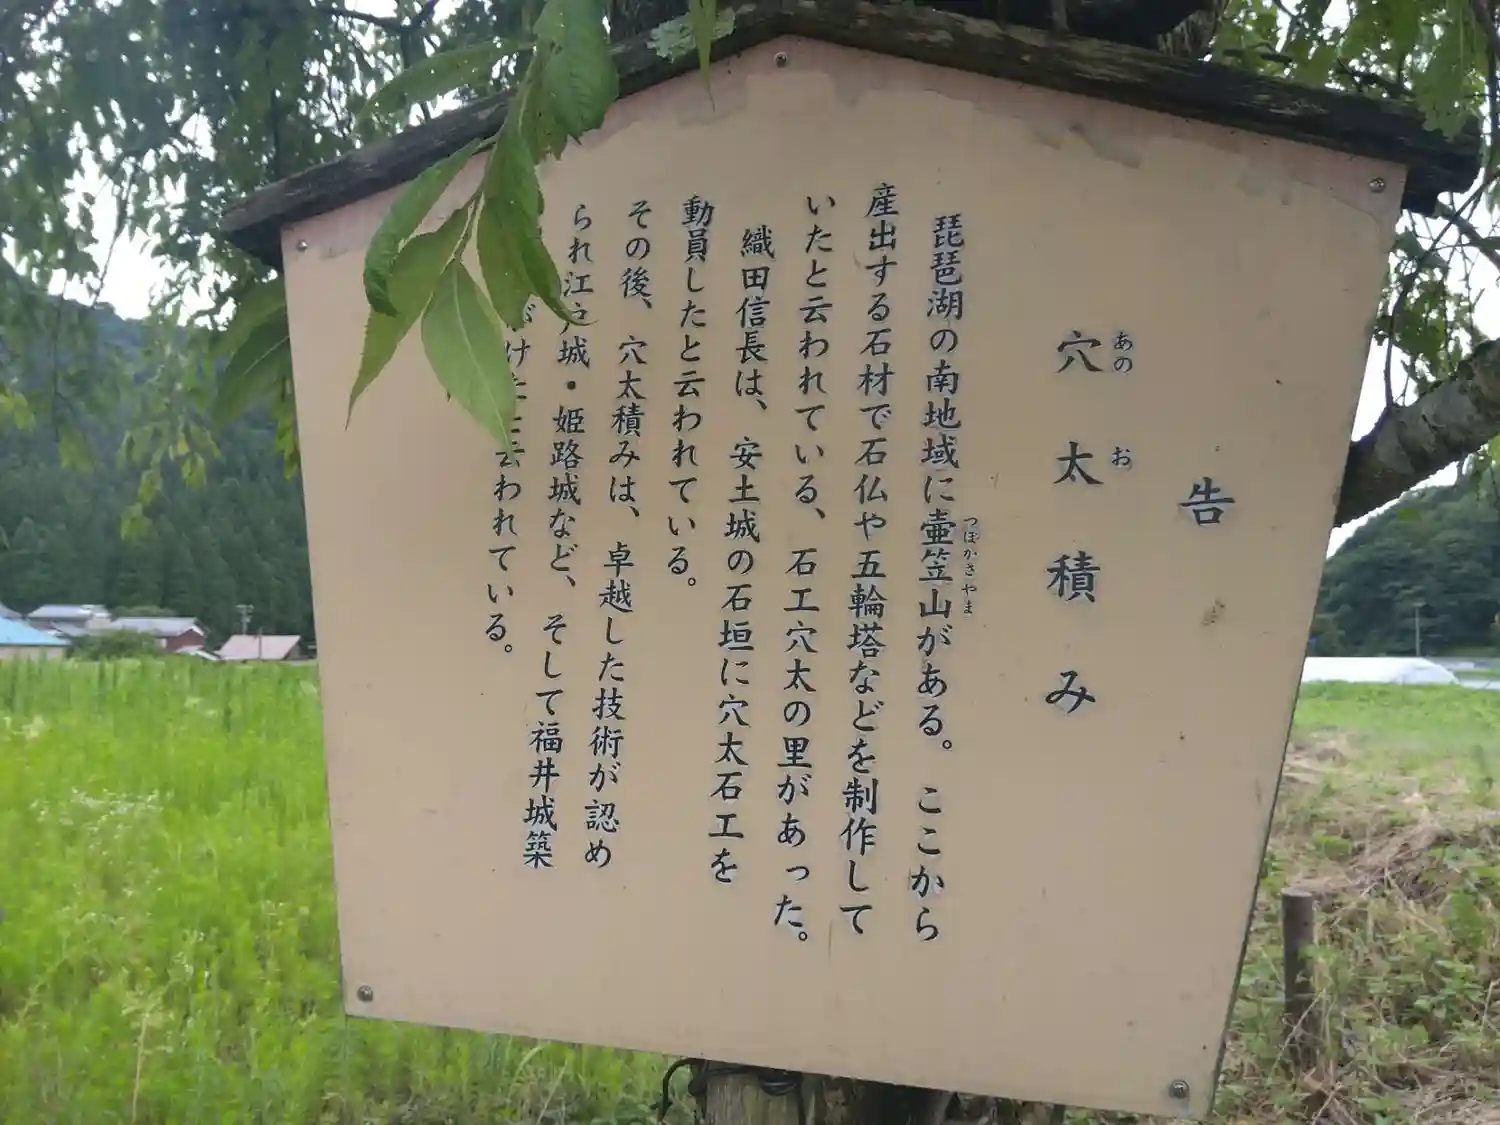 告
穴太積み
あの
お
琵琶湖の南地域に壷笠山がある。ここから
つぼかさやま
産出する石材で石仏や五輪塔などを制作して
いたと云われている、石工穴太の里があった。
織田信長は、安土城の石垣に穴太石工を
動員したと云われている。
その後、穴太積みは、卓越した技術が認め
られ江戸城・姫路城など、そして福井城築
けたと云われている。